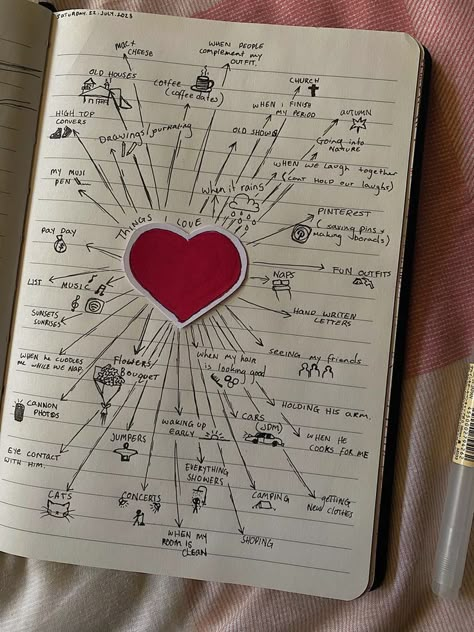 SATURDAY. 22. JULY. 2023
MAC +
CHEESE
WHEN PEOPLE
COMPLEMENT MY
OUTFIT.
OLD HOUSES
COFFEE
(COFFEE DATES)
CHURCH
WHEN I FINISH
MY PERIOD
AUTUMN
HIGH TOP
CONVERS
DRAWINGS/journaling
OLD SHOWS
Going into
NATURE
MY MUJI
PEN
WHEN WE LAUGH together
(CANT HOLD our laughs)
when it rains
THINGS I LOVE
PINTEREST
(saving pins +
making boards)
PAY DAY
LIST
MUSIC
NAPS
FUN OUTFITS
SUNSETS
SUNRISES
HAND WRITEN
LETTERS
WHEN HE CUDDLES
ME WHILE WE NAP.
FLOWERS
BOUQUET
when my hair
is looking good
seeing my friends
CANNON
PHOTOS
HOLDING HIS ARM.
JUMPERS
WAKING UP
EARLY
CARS
(JDM)
WHEN HE
COOKS FOR ME
EYE CONTACT
WITH HIM.
EVERYTHING
SHOWERS
CATS
CONCERTS
CAMPING
getting
New clothes
WHEN MY
ROOM IS
CLEAN
SHOPING